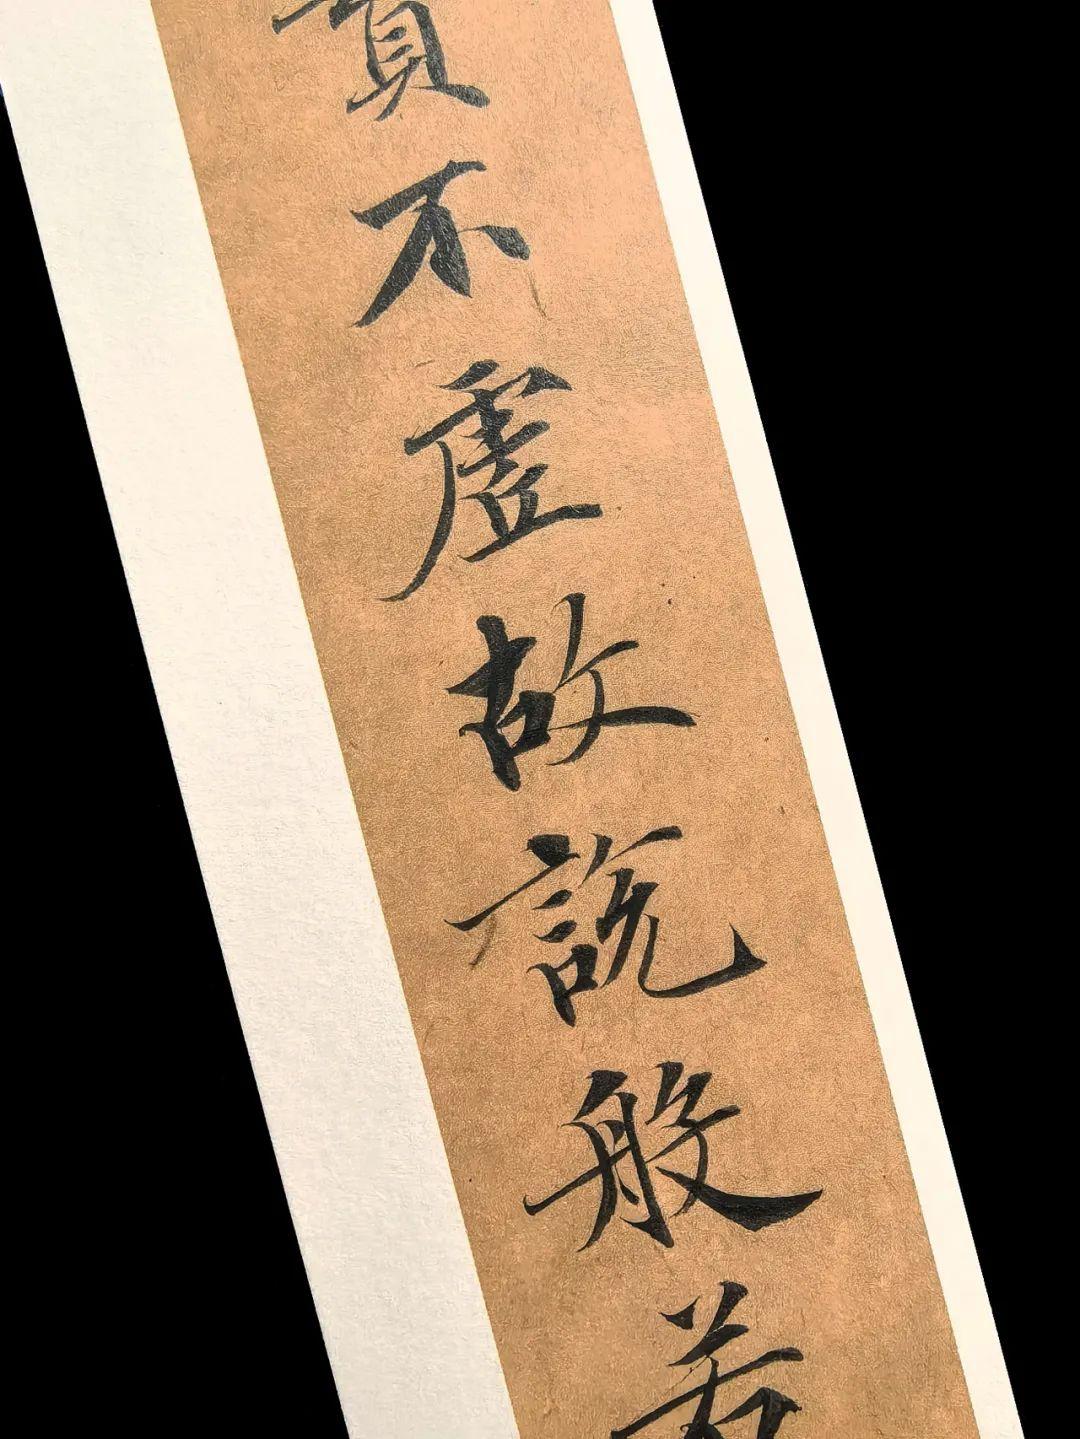 實不虛故說般若